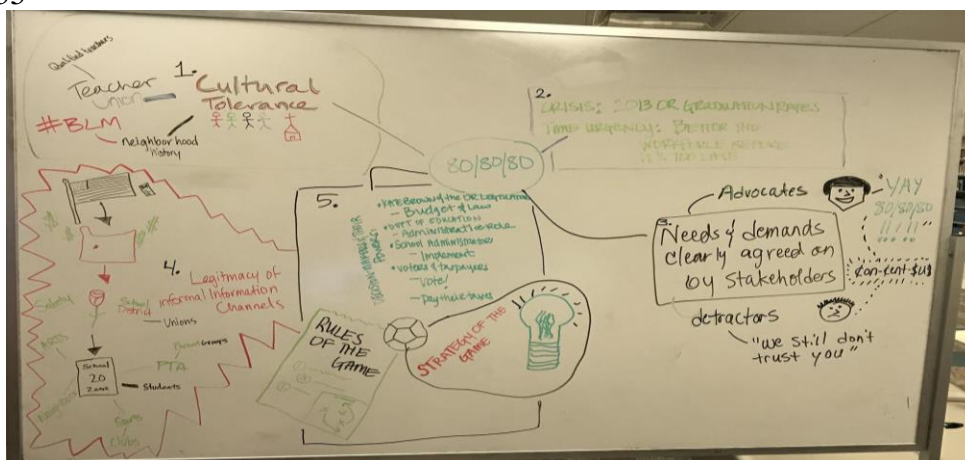 Qualified teachers
Teacher
Union
1.
Cultural
Tolerance
#BLM
neighborhood
history
80/80/80
2.
CRISIS: 2013 OR GRADUATION RATES
TIME URGENCY: BEHOR
WORKFORCE BEFORE
IT'S TOO LATE
Advocates
YAY
80/80/80
!! ! !!
3.
Needs & demands
clearly agreed on
by Stakeholders
¢on-¢ent-$u$
detractors
"we still don't
trust you"
4.
Legitmacy of
informal Information
Channels
Safety
School
District
Unions
Parent Groups
PTA
School
20
Zone
Students
Sports
Clubs
5.
DECISION-MAKERS & THEIR
POWERS
• KATE BROWN & the OR LEGISLATURE
— Budget & Law
• DEPT OF EDUCATION
— Administrative Role
• School Administrators
— Implement
• Voters & taxpayers
— Vote!
— Pay their taxes
RULES
OF THE
GAME
STRATEGY OF THE
GAME